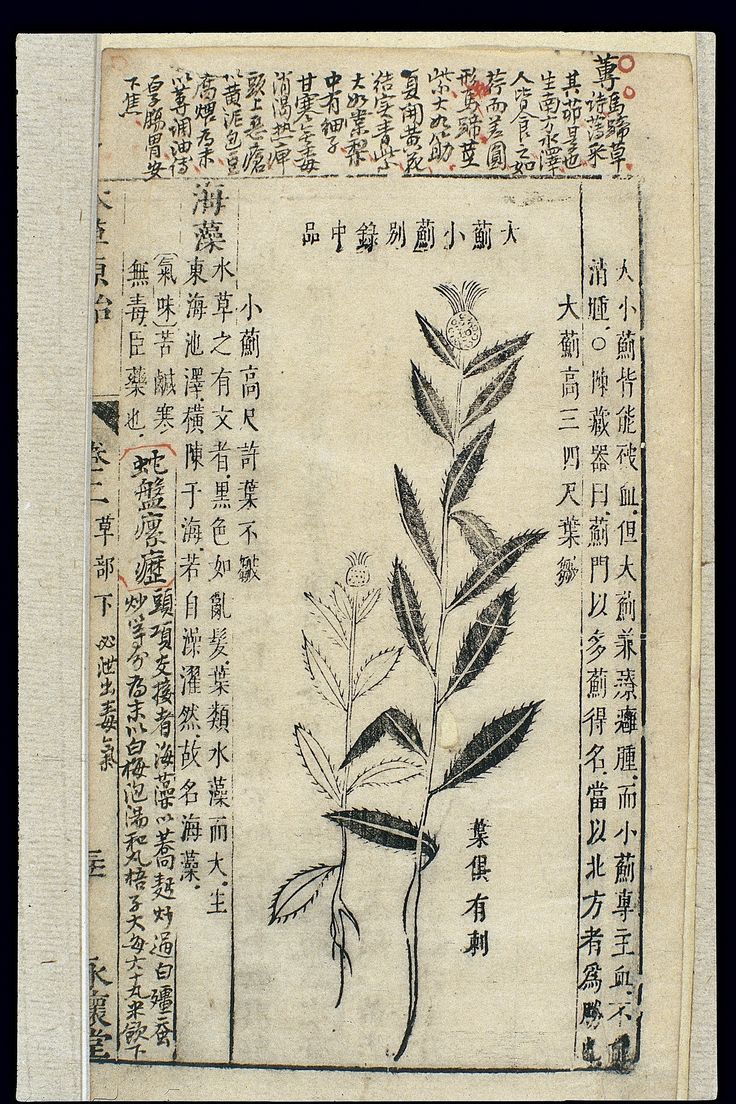 蓴 馬蹄草
詩薄采
其茆是也
生南方水澤
人皆食之如
荇而差圓
形似馬蹄莖
紫大如筯
夏開黃花
結实青紫
大如棠梨
中有細子
甘寒無毒
消渴热痹
頭上惡瘡
以黄泥包豆
腐煨為末
以蓴調油傅
厚腸胃安
下焦
大小薊皆能破血但大薊兼療癰腫而小薊專主血不
消腫○陳藏器曰薊門以多薊得名當以北方者爲勝也
大薊小薊別錄中品
大薊高三四尺葉皺
葉俱有刺
小薊高尺許葉不皺
海藻
水草之有文者黑色如亂髮葉類水藻而大生
東海池澤橫陳于海若自澡濯然故名海藻
氣味苦鹹寒
無毒臣藥也
蛇盤瘰癧
頭項交接者海藻以蕎麪炒過白殭蚕
炒等分為末以白梅泡湯和丸梧子大每六十丸米飲下
必泄出毒氣
本草原始
卷二 草部下
永懷堂